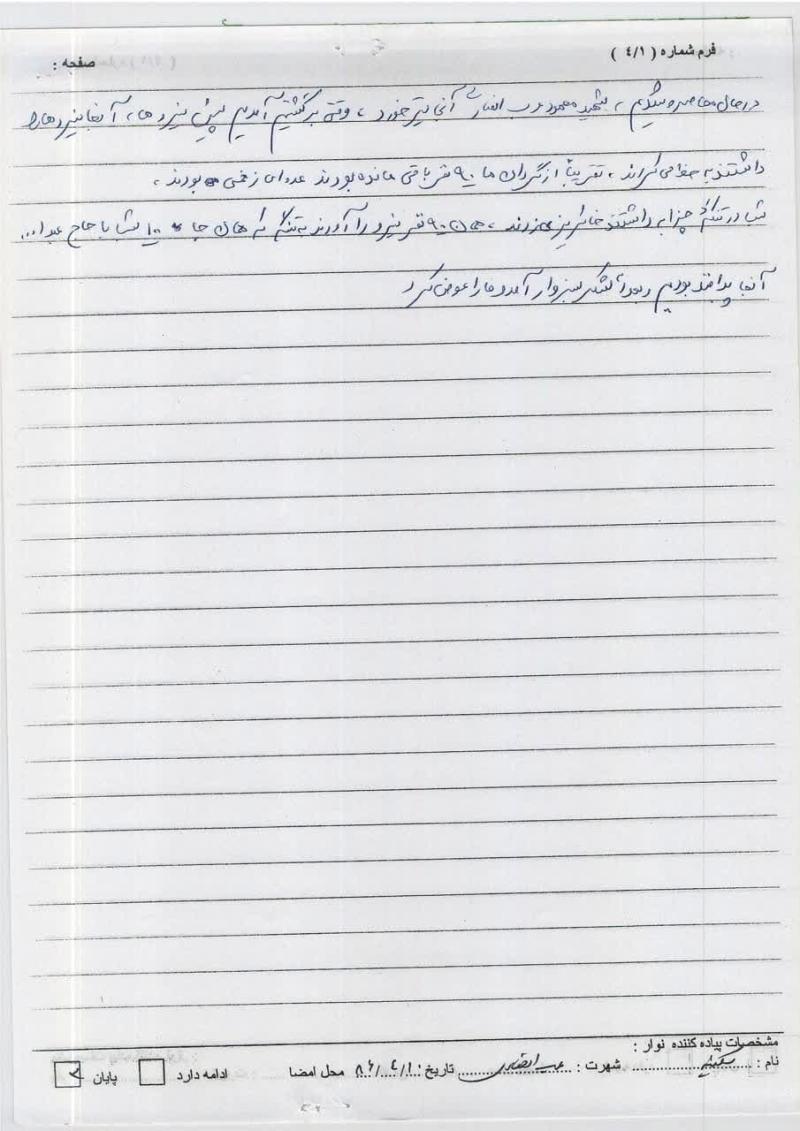 فرم شماره ( ۴/۱ )
صفحه :
در حال محاصره شدیم ، شهید محمود عرب انصاری آنجا تیر خورد ، وقتی برگشتیم آمدیم پیش نیروها ، آنجا نیروها را
داشتند به خط می‌کردند ، تقریباً از گردان ما ۹۰ نفر باقی مانده بودند عده‌ای زخمی بودند ،
شب در تنگ چزابه داشتند خاکریز می‌زدند ، همان ۹۰ نفر نیرو را آوردند به تنگ که همان جا ۱۰ شب با حاج عبدا...
آنجا پدافند بودیم و بعداً لشکر سبزوار آمد و ما را عوض کرد
مشخصات پیاده کننده نوار :
نام : سکینه شهرت : تاریخ : ۸۶/۴/۱ محل امضا ادامه دارد پایان